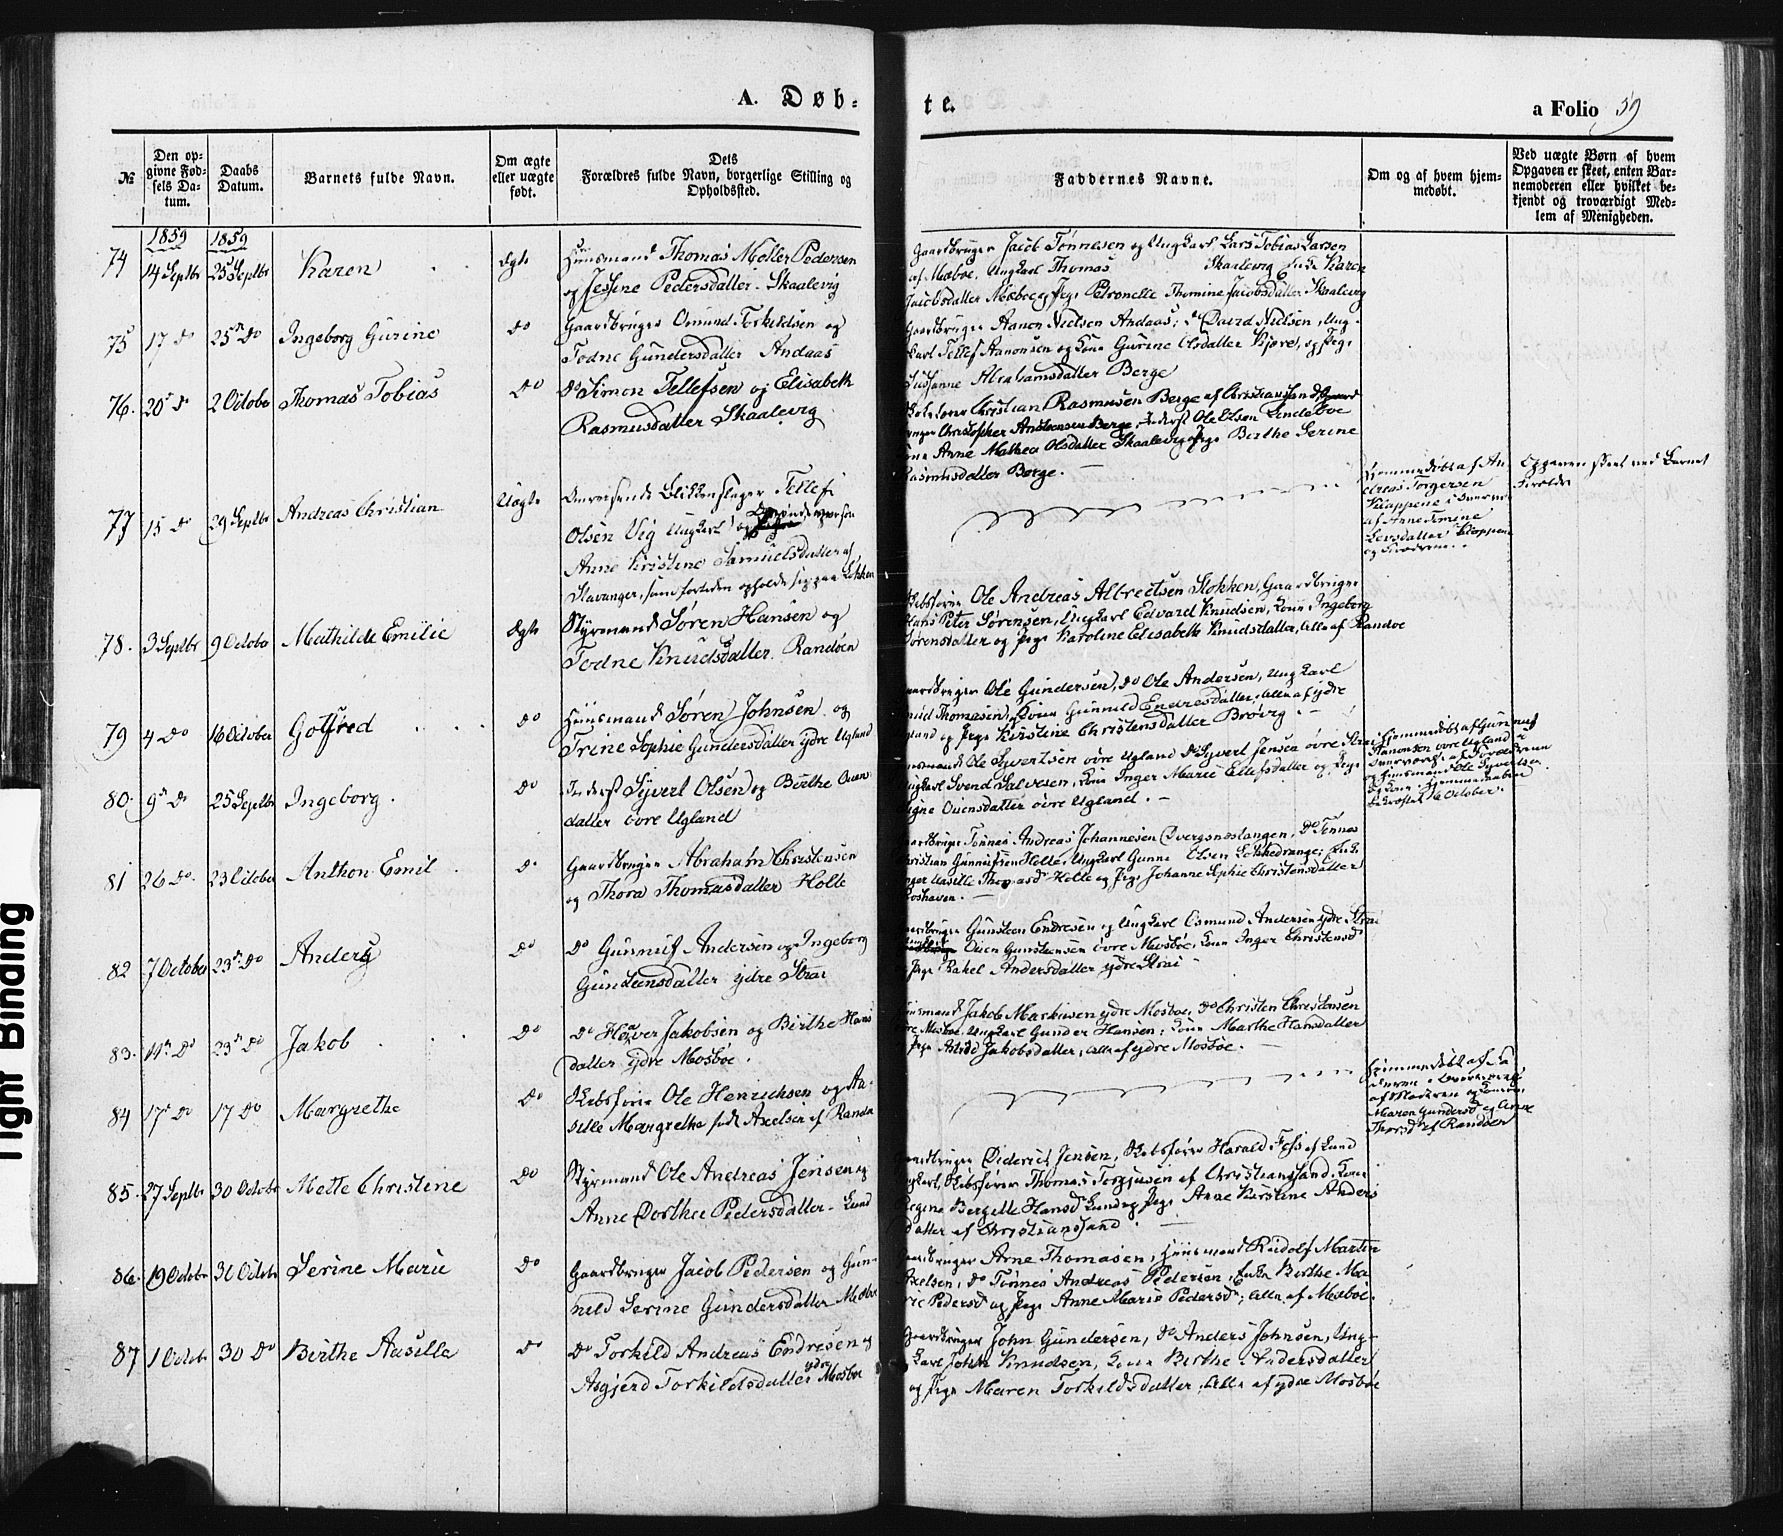 A. Døb-
te.
a Folio 59
№
Den op-
givne Fød-
sels Da-
tum.
Daabs
Datum.
Barnets fulde Navn.
Om ægte
eller uægte
født.
Dets
Forældres fulde Navn, borgerlige Stilling og
Opholdssted.
Faddernes Navne.
Om og af hvem hjem-
medøbt.
Ved uægte Børn af hvem
Opgaven er skeet, enten Bar-
nemoderen eller hvilket be-
kjendt og troværdigt Med-
lem af Menigheden.
1859 1859
74 14 Septbr 25 Septbr Karen Ægte
Huusmand Thomas Møller Pedersen
og Jessine Pedersdatter Skaalevig
Gaardbruger Jacob Tønnesen og Ungkarl Lars Tobias Larsen
af Mæboe. Ungkarl Thomas Skaalevig Enke Karen
Jacobsdatter Mæbøe og Pige Petronelle Thomine Jacobsdatter Skaalevig
75 17 Do 25 Do Ingeborg Gurine Do
Gaardbruger Osmund Torkildsen og
Todne Gundersdatter Andaas
Gaardbruger Aanon Nielsen Andaas; Do David Nielsen, Ung-
karl Tellef Aanonsen og Kone Gurine Olsdatter Kjøre, og Pige
Susanne Abrahamsdatter Berge
76. 20 Do 2 October Thomas Tobias Do
Do Simon Tellefsen og Elisabeth
Rasmusdatter Skaalevig
Christian Rasmusen Berge af Christianssand, Gaard-
bruger Christopher Berge, Inderst Ole Olsen Lindeboe
Kone Anne Mathea Olsdatter Skaalevig og Pige Birthe Serine
Rasmusdatter Berge. —
77 15 Do 29 Septbr Andreas Christian Uægte
Omreisende Blikkenslager Tellef
Olsen Vig Ungkarl og
Anne Kristine Samuelsdatter af
Stavanger, som fortiden opholde sig paa Lokken
Hjemmedøbt af An
dreas Torgersen
af Anne Tomine
Larsdatter Kloppene
Opgaven skeet ved Barnets
Forældre
78. 3 Septbr 9 October Mathilde Emilie Ægte
Styrmand Søren Hansen og
Todne Knudsdatter. Randøen
Skibsfører Ole Andreas Albrectsen Stokken, Gaardbruger
Hans Peter Sørensen, Ungkarl Edvard Knudsen, Kone Ingeborg
Sørensdatter og Pige Karoline Elisabeth Knudsdatter, Alle af Randøe
79 4 Do 16 October Gotfred Do
Huusmand Søren Johnsen og
Trine Sophie Gundersdatter ydre Ugland
Gaardbruger Ole Gundersen, Do Ole Andersen, Ungkarl
Thomasen, Kone Gunnild Endresdatter, Alle af ydre
Ugland og Pige Kirstine Christensdatter Brøvig. —
80. 9 Do 25 Septbr Ingeborg. Do
Inderst Syvert Olsen og Birthe Ouen
datter øvre Ugland
Huusmand Ole Syvertsen øvre Ugland Do Syvert Jensen øvre Strai
Ungkarl Svend Salvesen, Kone Inger Marie Ellefsdatter og Pige
Signe Ouensdatter øvre Ugland. —
Hjemmedøbt af Gunnuf
Aanonsen øvre Ugland i
Overværelse af Forældrene
og Huusmand Ole Syvertsen
og Kone. Hjemmedaaben
bekræftet 16 October.
81 26 Do. 23 October Anthon Emil Do
Gaardbruger Abraham Christensen
og Thora Thomasdatter Holte
Gaardbruger Tønnes Andreas Johannesen Dvergsnestangen, Do Tønnes
Christian Gunnufsen Holte, Ungkarl Gunne Olsen Eskedrange; Enke
Inger Aasille Thomasd Holte og Pige Johanne Sophie Christensdatter
82 7 October 23 Do Anders Do
Do Gunnuf Andersen og Ingeborg
Gundersdatter ydre Strai
Gaardbruger Gunsteen Endresen og Ungkarl Osmund Andersen ydre Strai
Ouen Gunsteensen øvre Mosbøe, Kone Inger Christensd
Pige Rakel Andersdatter ydre Strai
83. 11 Do 23 Do Jakob Do
Do Haaver Jakobsen og Birthe Hans
datter ydre Mosbøe.
Huusmand Jakob Markusen ydre Mosboe, Do Christen Christensen
øvre Mosboe. Ungkarl Gunder Hansen; Kone Marthe Hansdatter
Pige Astrid Jakobsdatter, Alle af ydre Mosbøe. —
84 17 Do 17 Do Margrethe Do
Skibsfører Ole Henrichsen og Aa-
sille Margrethe født Axelsen af Randø
Hjemmedøbt af Fa
deren i Overværelse
af Moderen og Konerne
Maren Gundersd og Anne
Thorsd af Randøen
85. 27 Septbr 30 October Mette Christine Do
Styrmand Ole Andreas Jensen og
Anne Dorthea Pedersdatter - Lund
Gaardbruger Diderich Jensen, Skibsfører Harald Foss af Lund
Ungkarl, Skibsfører Thomas Torgjusen af Christianssand, Kone
Regine Bergitte Hansd Lund og Pige Anne Kirstine Anders
datter af Christianssand. —
86. 19 October 30 Octobr Serine Marie Do
Gaardbruger Jacob Pedersen og Gun-
nild Serine Gundersdatter Mæboe
Gaardbruger Arne Thomasen, Huusmand Rudolf Martin
Axelsen, Do Tønnes Andreas Pedersen, Enke Birthe Ma
rie Pedersd og Pige Anne Marie Pedersd; Alle af Mæboe.
87 1 Octobr 30 Do Birthe Aasille Do
Do Torkild Andreas Endresen og
Asgjerd Torkildsdatter ydre Mosboe
Gaardbruger John Gundersen, Do Anders Johnsen, Ung-
karl John Knudsen, Kone Birthe Andersdatter
og Pige Maren Torkildsdatter, Alle af ydre Mosbøe
Tight Binding